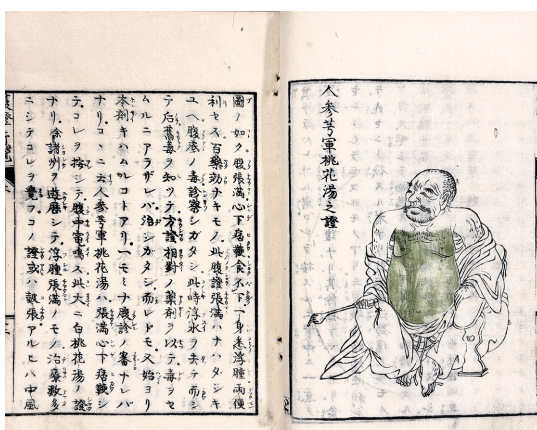 人参芎軍桃花湯之證
圖ノ如ク腹張滿心下痞鞕食不下一身悉浮腫兩便
利セス百藥効ナキモノ此腹證張滿ハナハダシキ
ユヘ腹底ノ毒診察シガタシ此時浮水ヲ去テ而シ
テ后舊毒ヲ知ツテ方證相對ノ藥劑ヲ以テ毒ヲセ
ムルニアラザレバ治シガタシ而レドモ又始ヨリ
本劑キハムルコトアリ一モミナ腹診ノ案ナレバ
ナリコヽニ云人参芎軍桃花湯ハ張滿心下痞鞕シ
テコレヲ按シテ腹中雷鳴ス此大ニ白桃花湯ノ證
ナリ余諸州ヲ遊歷シテ浮腫張滿ノモノ治療數多
ニシテコレヲ覺ヲコノ證或ハ鼓張アルヒハ中風